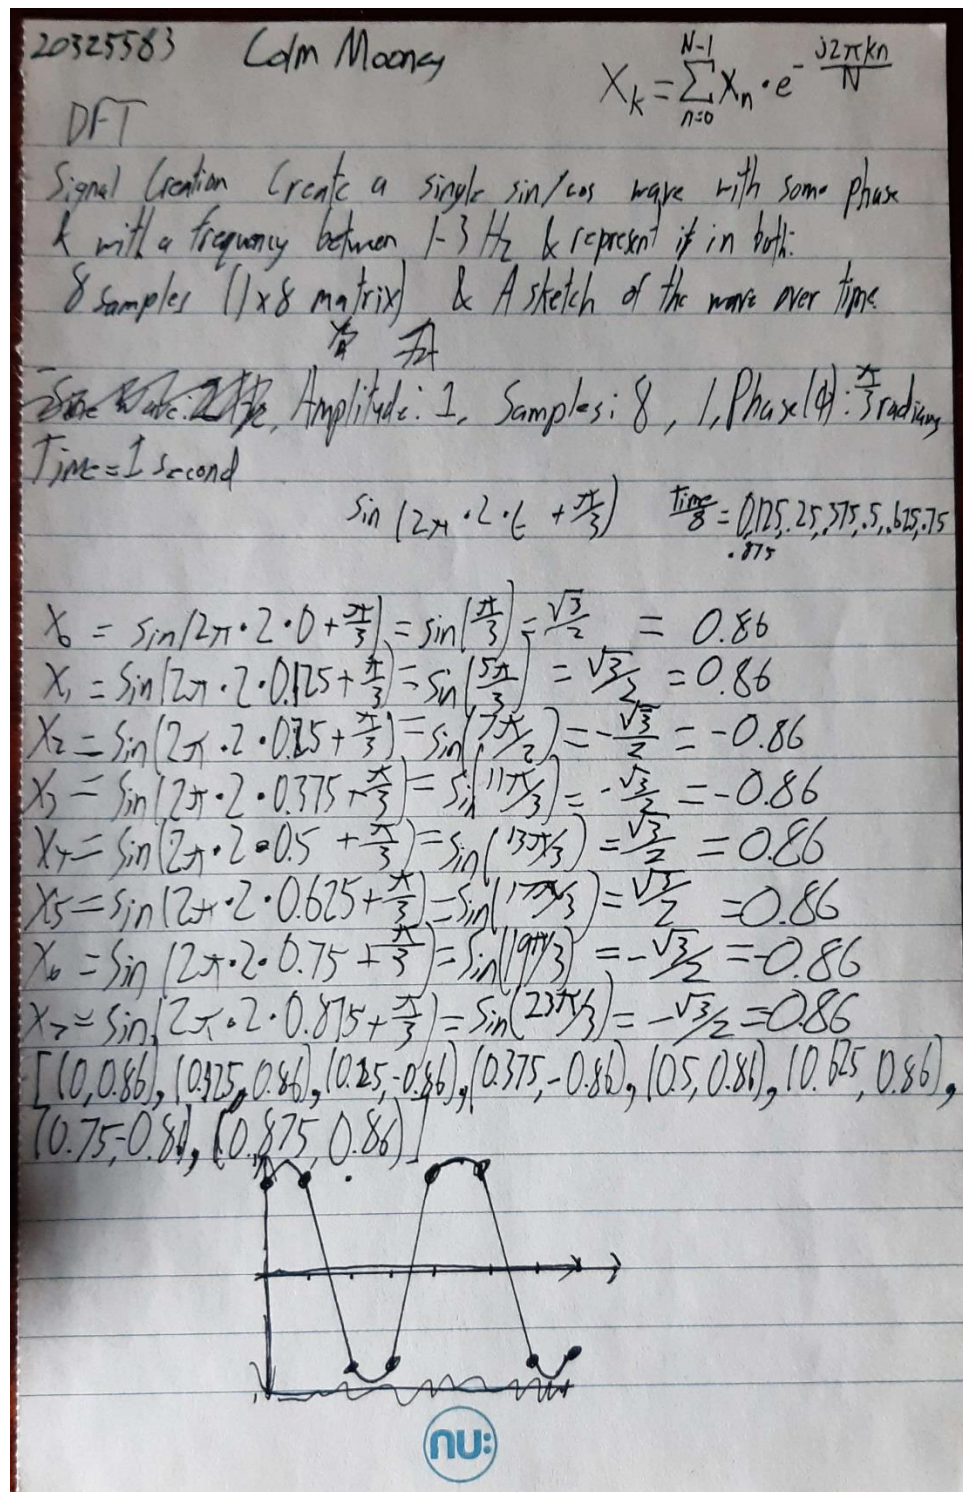 20325583 Colm Mooney
X_k = Σ_{n=0}^{N-1} x_n · e^{- j2πkn/N}
DFT
Signal Creation Create a single sin/cos wave with some phase
k with a frequency between 1-3 Hz & represent it in both:
8 samples (1x8 matrix) & A sketch of the wave over time.
Amplitude: 1, Samples: 8, 1, Phase(ϕ): π/3 radians
Time = 1 second
sin (2π · 2 · t + π/3) Time/8 = 0,.125,.25,.375,.5,.625,.75
.875
X₀ = sin(2π · 2 · 0 + π/3) = sin(π/3) = √3/2 = 0.86
X₁ = sin(2π · 2 · 0.125 + π/3) = sin(5π/3) = √3/2 = 0.86
X₂ = sin(2π · 2 · 0.25 + π/3) = sin(7π/2) = -√3/2 = -0.86
X₃ = sin(2π · 2 · 0.375 + π/3) = sin(11π/3) = -√3/2 = -0.86
X₄ = sin(2π · 2 · 0.5 + π/3) = sin(13π/3) = √3/2 = 0.86
X₅ = sin(2π · 2 · 0.625 + π/3) = sin(17π/3) = √3/2 = 0.86
X₆ = sin(2π · 2 · 0.75 + π/3) = sin(19π/3) = -√3/2 = -0.86
X₇ = sin(2π · 2 · 0.875 + π/3) = sin(23π/3) = -√3/2 = 0.86
[(0,0.86), (0.125, 0.86), (0.25,-0.86), (0.375,-0.86), (0.5, 0.86), (0.625, 0.86),
(0.75,-0.86), (0.875, 0.86)]
nu: